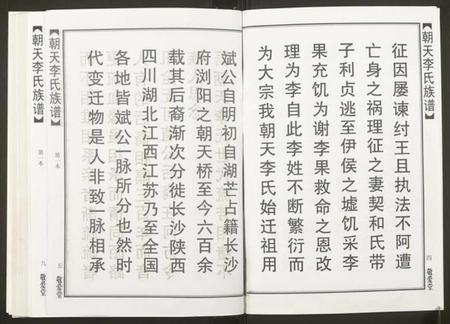 【朝天李氏族谱】
征因屡谏纣王且执法不阿遭
亡身之祸理征之妻契和氏带
子利贞逃至伊侯之墟饥采李
果充饥为谢李果救命之恩改
理为李自此李姓不断繁衍而
为大宗我朝天李氏始迁祖用
四
敬爱堂
斌公自明初自湖芒占籍长沙
府浏阳之朝天桥至今六百余
载其后裔渐次分徙长沙陕西
四川湖北江西江苏乃至全国
各地皆斌公一脉所分也然时
代变迁物是人非致一脉相承
【朝天李氏族谱】
第一本
五
敬爱堂
【朝天李氏族谱】
第一本
九
敬爱堂